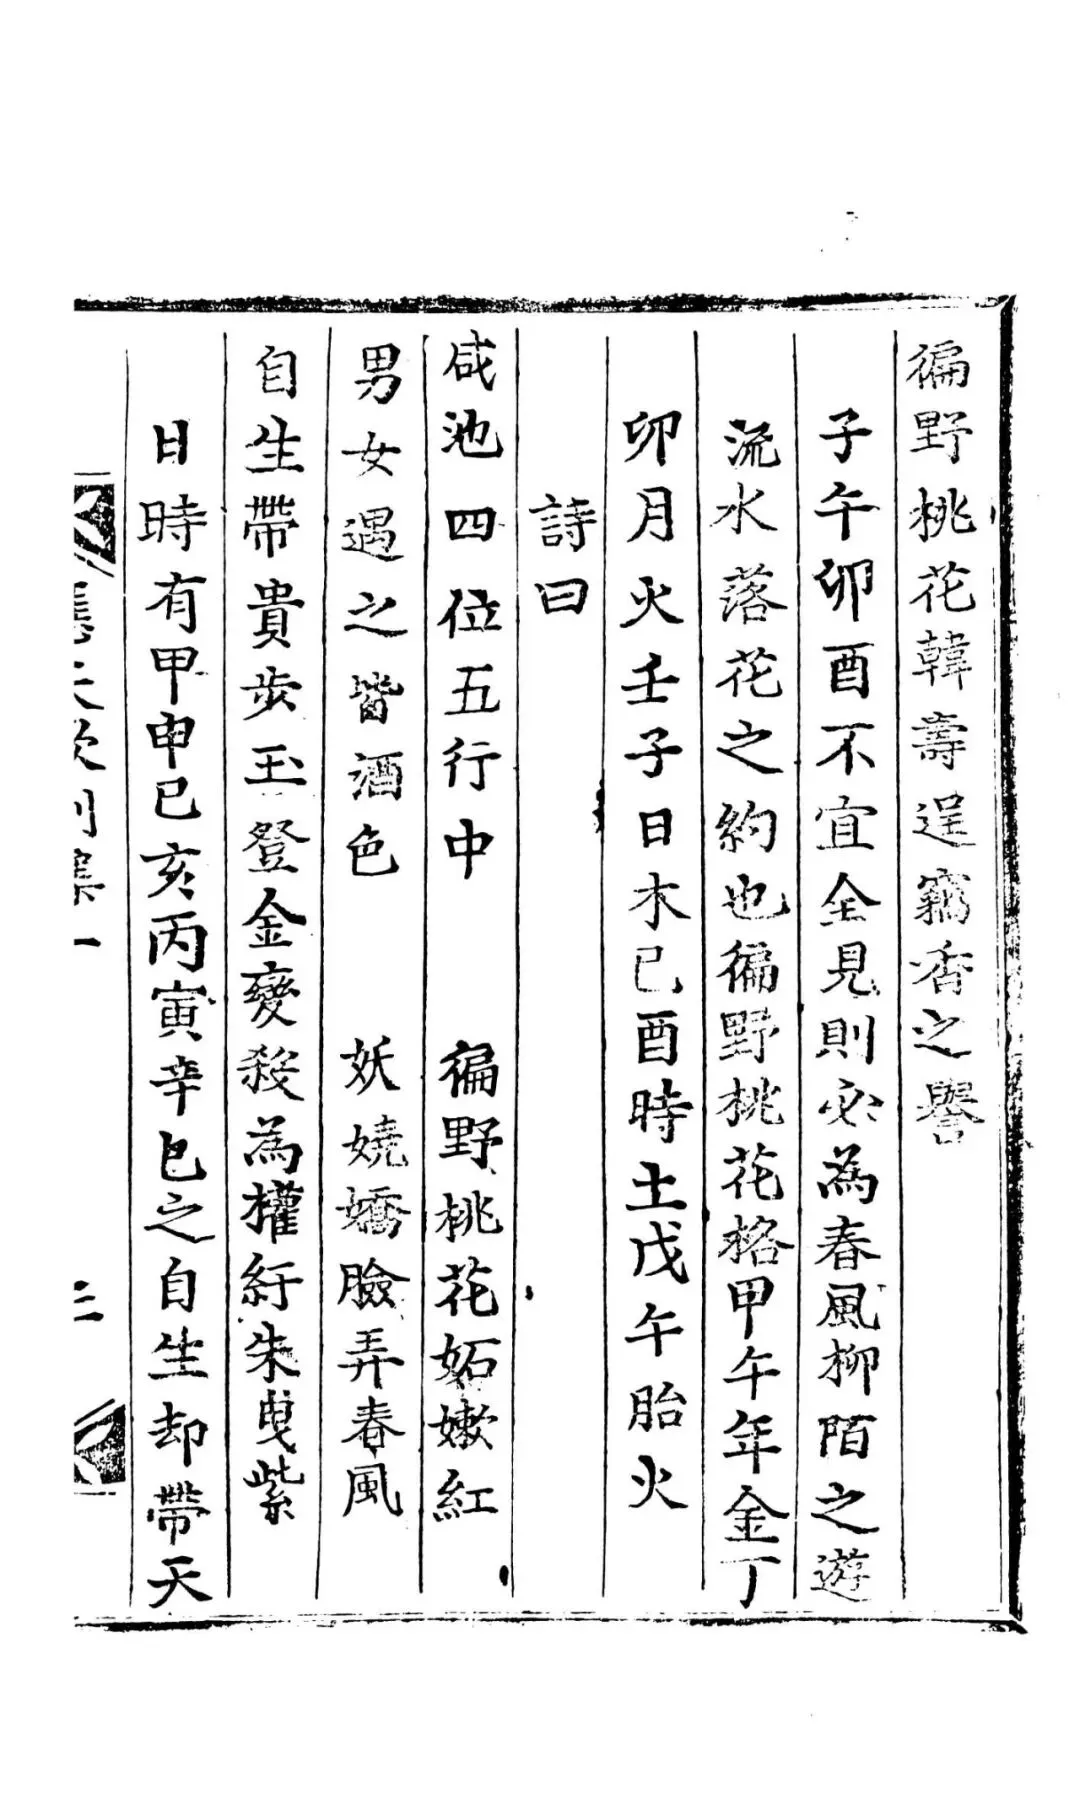 徧野桃花韓壽逞竊香之譽
子午卯酉不宜全見則必為春風柳陌之遊
流水落花之約也徧野桃花格甲午年金丁
卯月火壬子日木己酉時土戊午胎火
詩曰
咸池四位五行中　徧野桃花妬嫩紅
男女遇之皆酒色　妖嬈嬌臉弄春風
自生帶貴步玉登金變殺為權紆朱曳紫
日時有甲申己亥丙寅辛巳之自生却帶天
集一
三